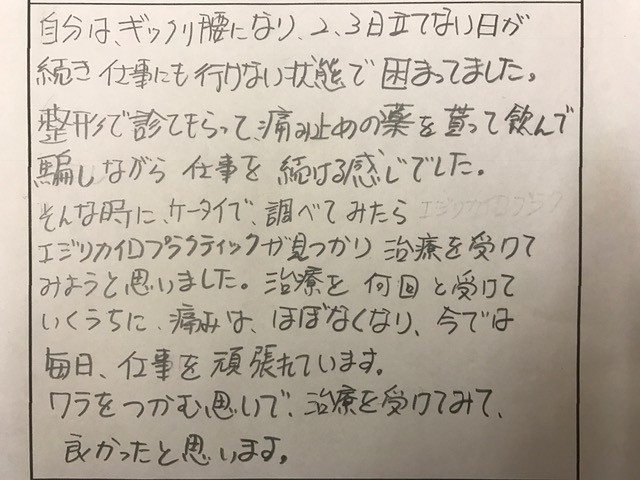 自分は、ギックリ腰になり、2、3日立てない日が
続き仕事にも行けない状態で困まってました。
整形で診てもらって、痛み止めの薬を貰って飲んで
騙しながら 仕事を 続ける感じでした。
そんな時に、ケータイで、調べてみたら エジリカイロプラク
エジリカイロプラクティックが見つかり 治療を受けて
みようと思いました。治療を 何回と受けて
いくうちに、痛みは、ほぼなくなり、今では
毎日、仕事を頑張れています。
ワラをつかむ思いで、治療を受けてみて、
良かったと思います。